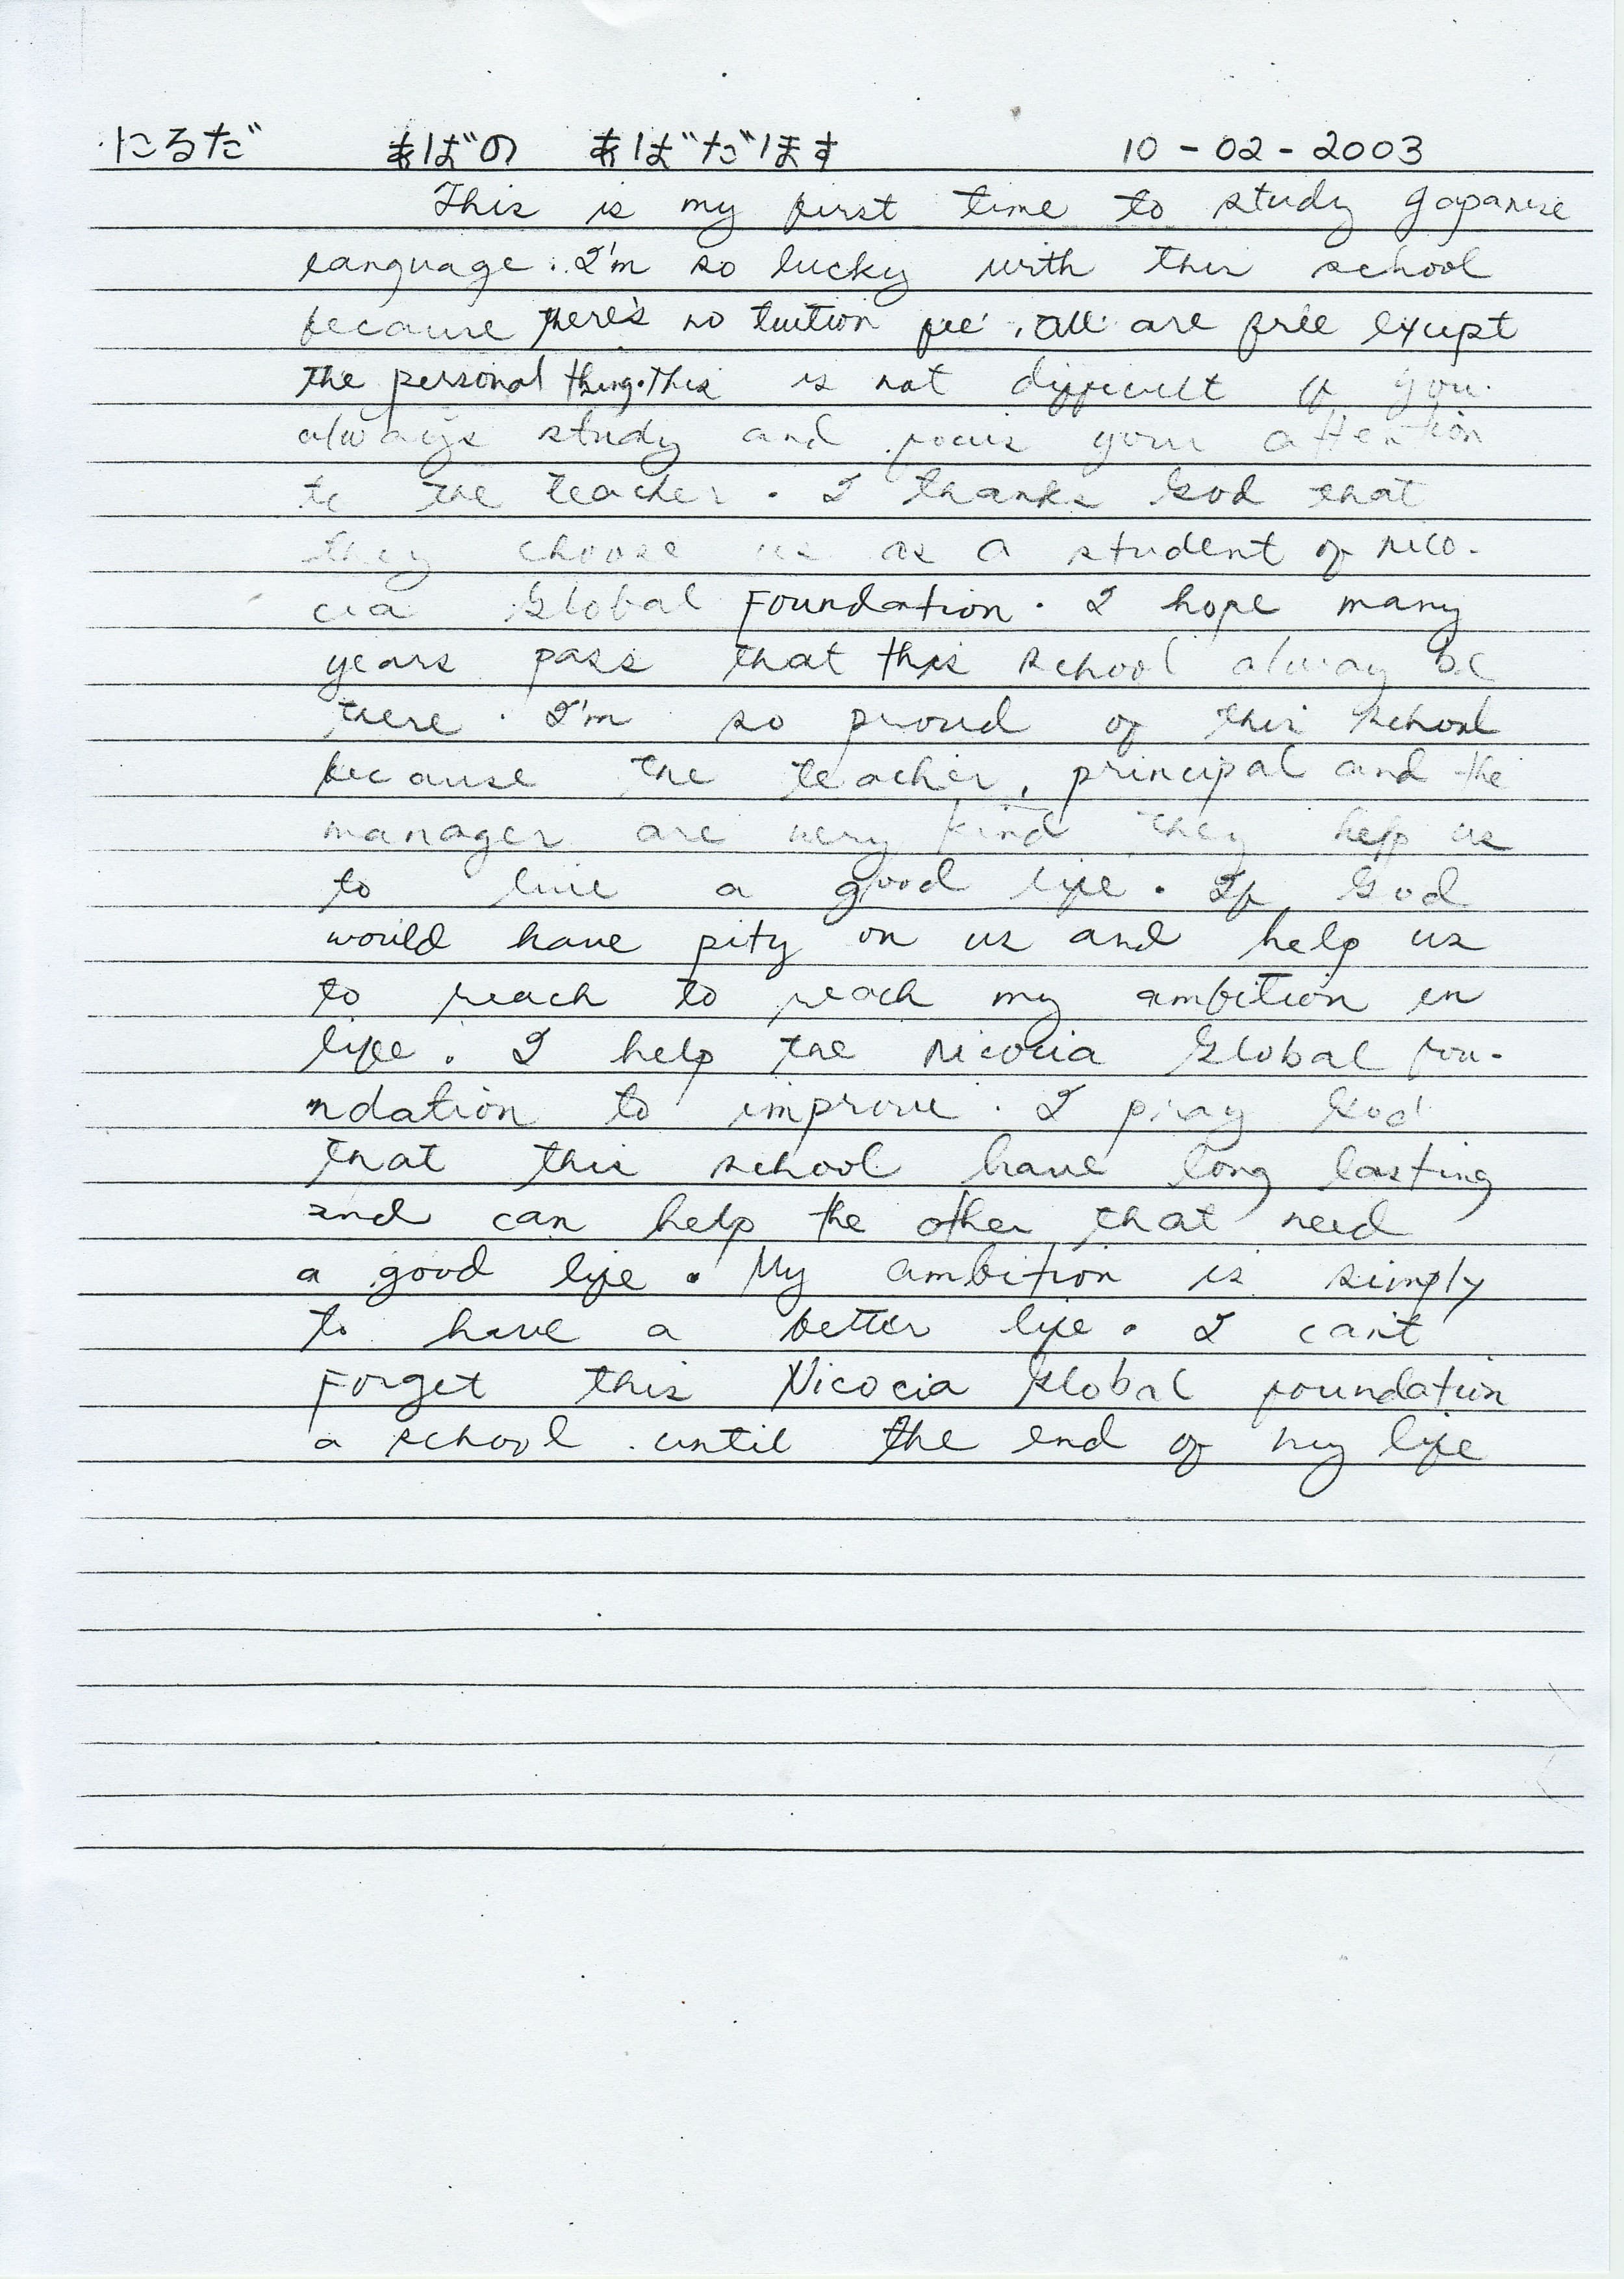 にるだ あばの あばだほま 10-02-2003
This is my first time to study Japanese
language. I'm so lucky with this school
because there's no tuition fee. All are free exept
the personal thing. This is not difficult if you
always study and focus your attention
to the teacher. I thanks God that
they choose us as a student of Nico-
cia Global Foundation. I hope many
years pass that this school alway be
there. I'm so proud of this school
because the teacher, principal and the
manager are very kind they help us
to live a good life. If God
would have pity on us and help us
to reach to reach my ambition in
life. I help the Nicocia Global fou-
ndation to improve. I pray God
that this school have long lasting
and can help the other that need
a good life. My ambition is simply
to have a better life. I can't
Forget this Nicocia Global foundation
a school until the end of my life